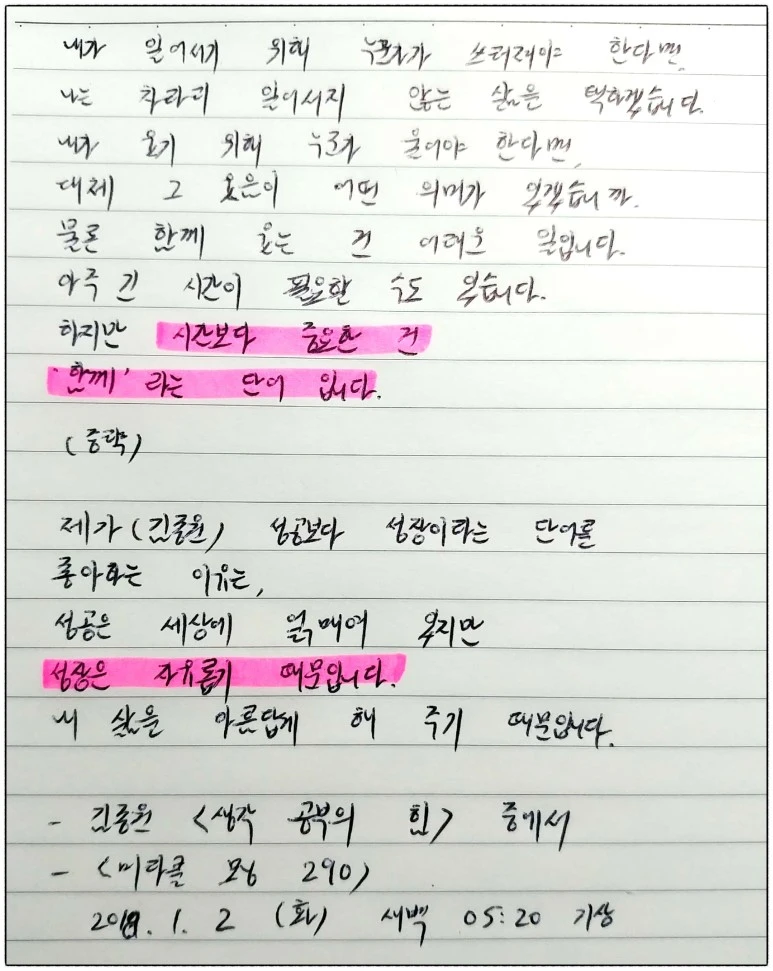 내가 일어서기 위해 누군가가 쓰러져야 한다면,
나는 차라리 일어서지 않는 삶을 택하겠습니다.
내가 웃기 위해 누군가 울어야 한다면,
대체 그 웃음이 어떤 의미가 있겠습니까.
물론 함께 웃는 건 어려운 일입니다.
아주 긴 시간이 필요할 수도 있습니다.
하지만 시간보다 중요한 건
'함께' 라는 단어 입니다.
(중략)
제가(김종원) 성공보다 성장이라는 단어를
좋아하는 이유는,
성공은 세상에 얽매여 있지만
성장은 자유롭기 때문입니다.
내 삶을 아름답게 해 주기 때문입니다.
- 김종원 <생각 공부의 힘> 중에서
- <미라클 모닝 290>
1. 2 (화) 새벽 05:20 기상